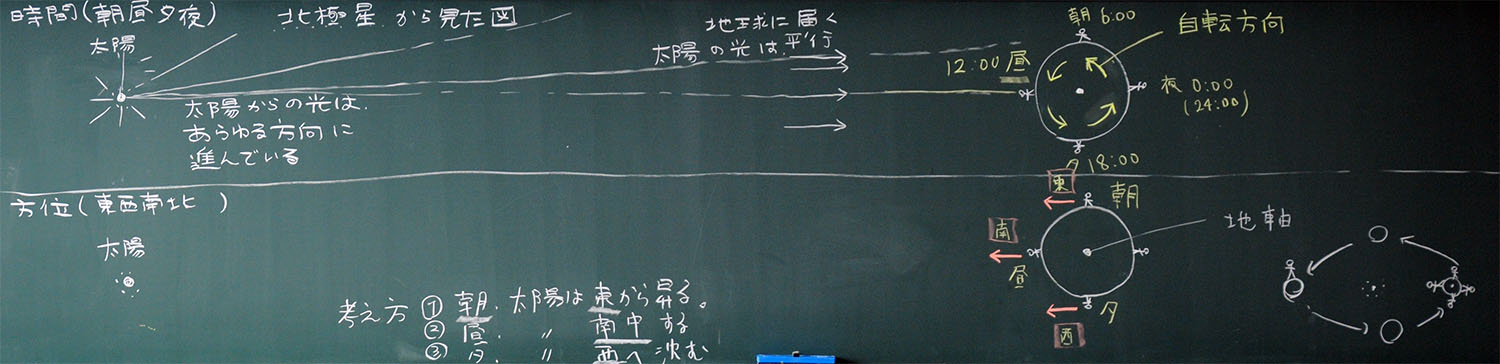 時間(朝昼夕夜)
北極星から見た図
太陽
太陽からの光は、
あらゆる方向に
進んでいる
地球に届く
太陽の光は、平行
朝 6:00
自転方向
12:00 昼
夜 0:00
(24:00)
夕 18:00
方位(東西南北 )
太陽
考え方 ① 朝、太陽は東から昇る。
② 昼、 〃 南中する
③ 夕、 〃 西へ沈む
東
朝
南
昼
地軸
夕
西